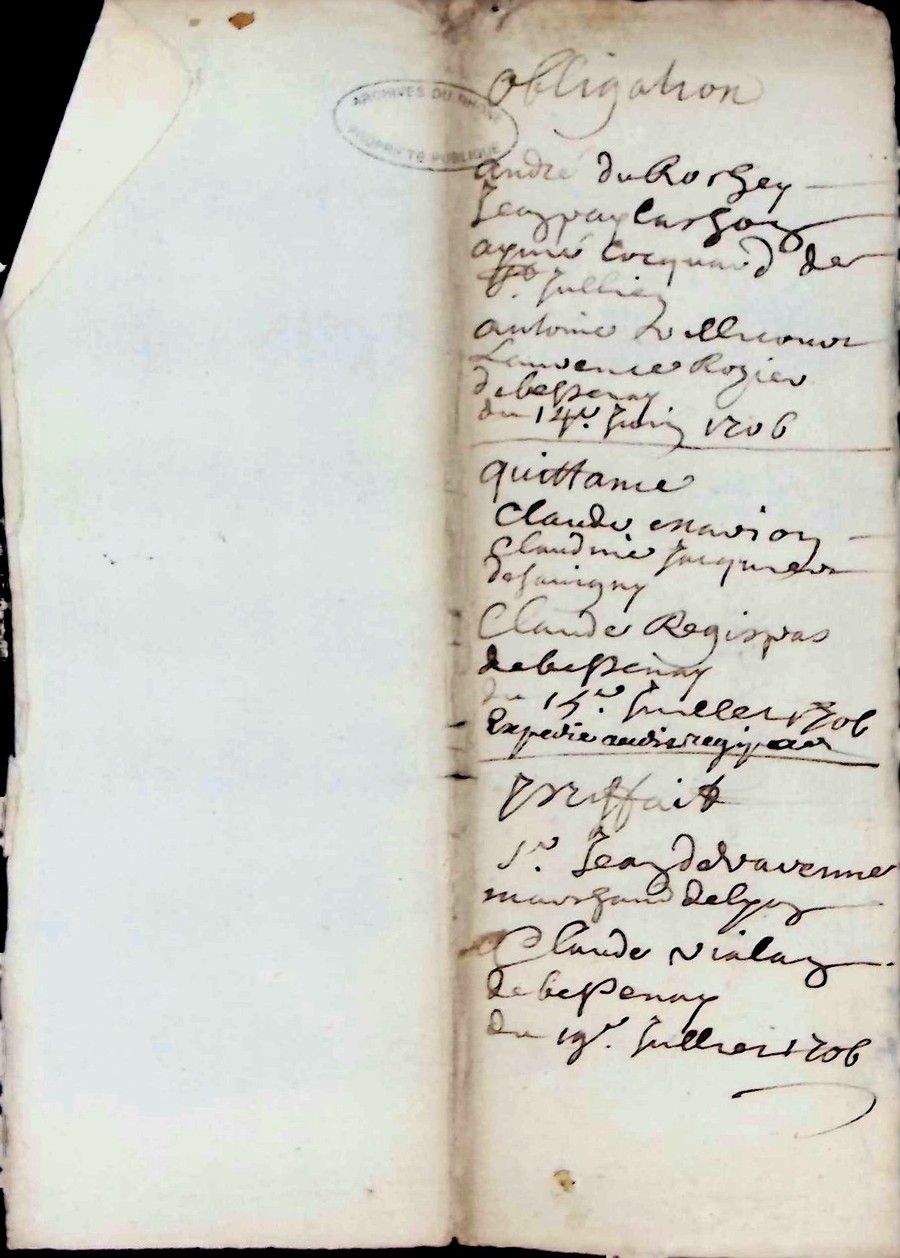 obligation
ARCHIVES DU RHÔNE
PROPRIÉTÉ PUBLIQUE
andré du Rochey
Jean
aymé Cocquard de
St. Jullien
antoine
Laurence Rozier
de bessenay
du 14e. Juin 1706
quittance
Claude marion
Claudine Jacquier
de savigny
Claude Regispas
de bessenay
du 15e. Juillet 1706
Expedié audit regipas
prisfait
sr. Jean de varenne
marchand de lyon
Claude vialay
de bessenay
du 19e. Juillet 1706